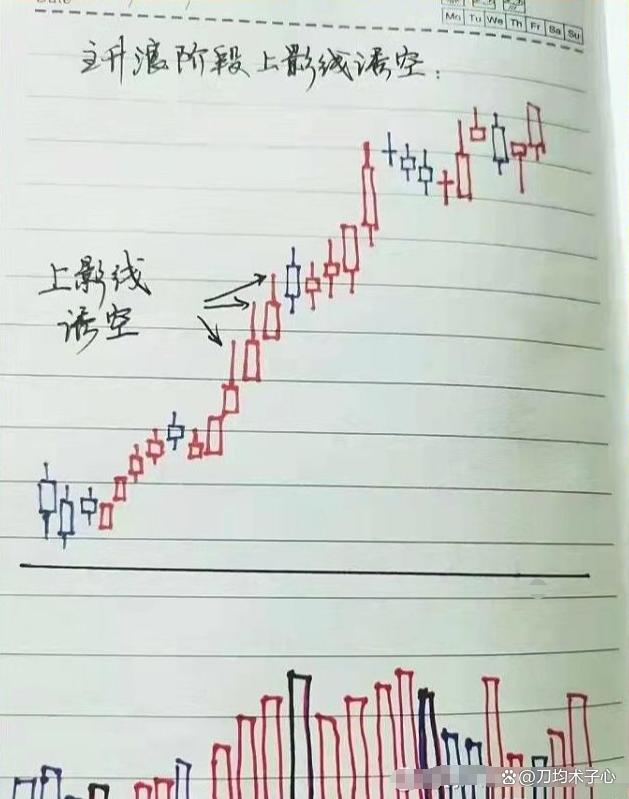 Mo Tu We Th Fr Sa Su
主升浪阶段上影线诱空:
上影线
诱空
@刀均术子心